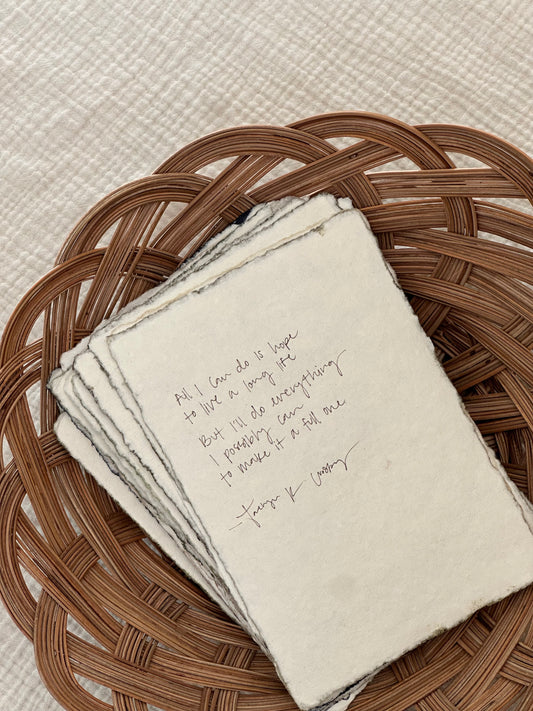 All I can do is hope
to live a long life
But I'll do everything
I possibly can
to make it a full one.
K